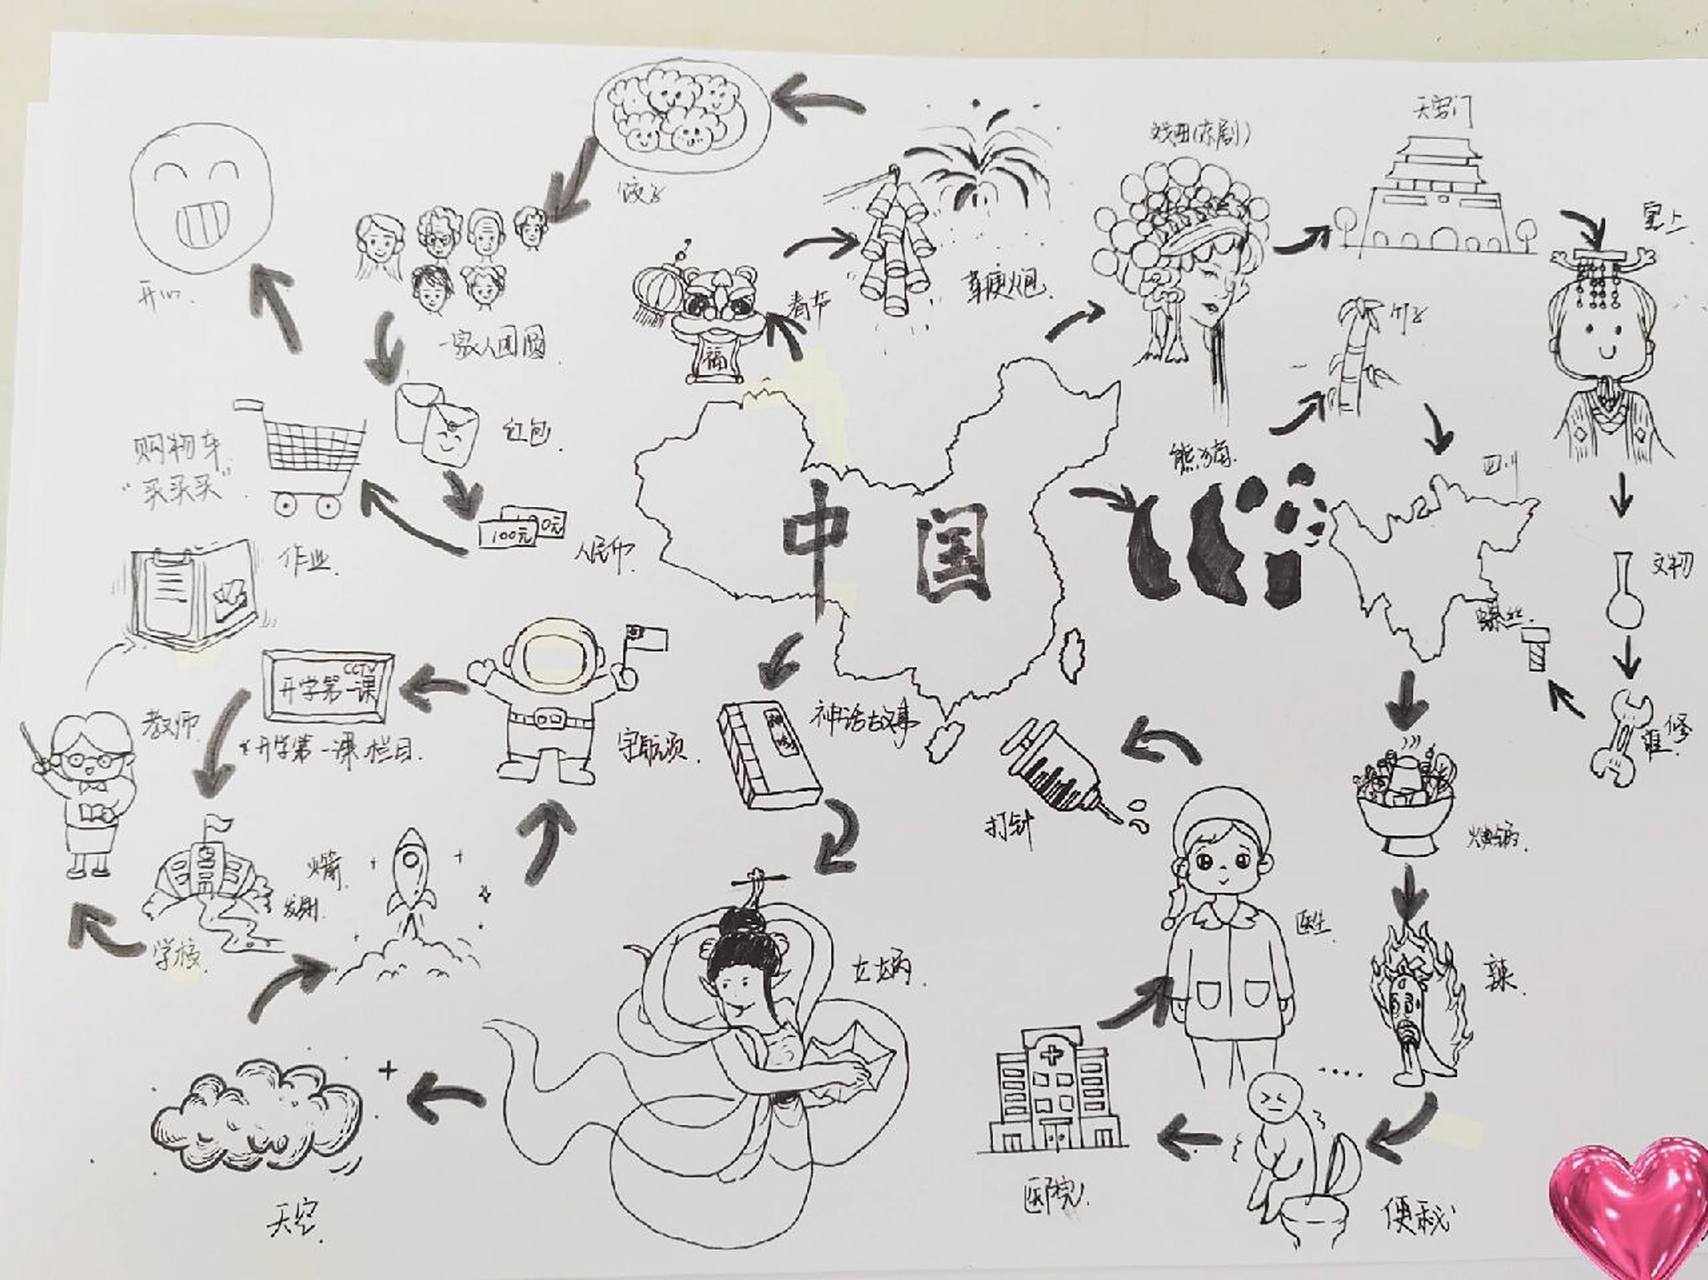 天安门
戏曲(京剧)
皇上
饺子
春节
鞭炮
福
开心.
一家人团圆
竹子
红包
购物车
"买买买"
熊猫
四川
100元
0元
人民币
中国
作业
文物
螺丝
维修
CCTV
开学第一课
*开学第一课栏目.
教师
宇航员
神话故事
神话
打针
火锅
火箭
发射
学校
医生
辣
女娲
天空
医院
便秘